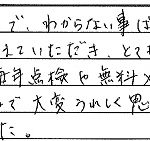 で、わからない事は
えていただき、とても
毎年点検や無料メ
で大変うれしく思
た。